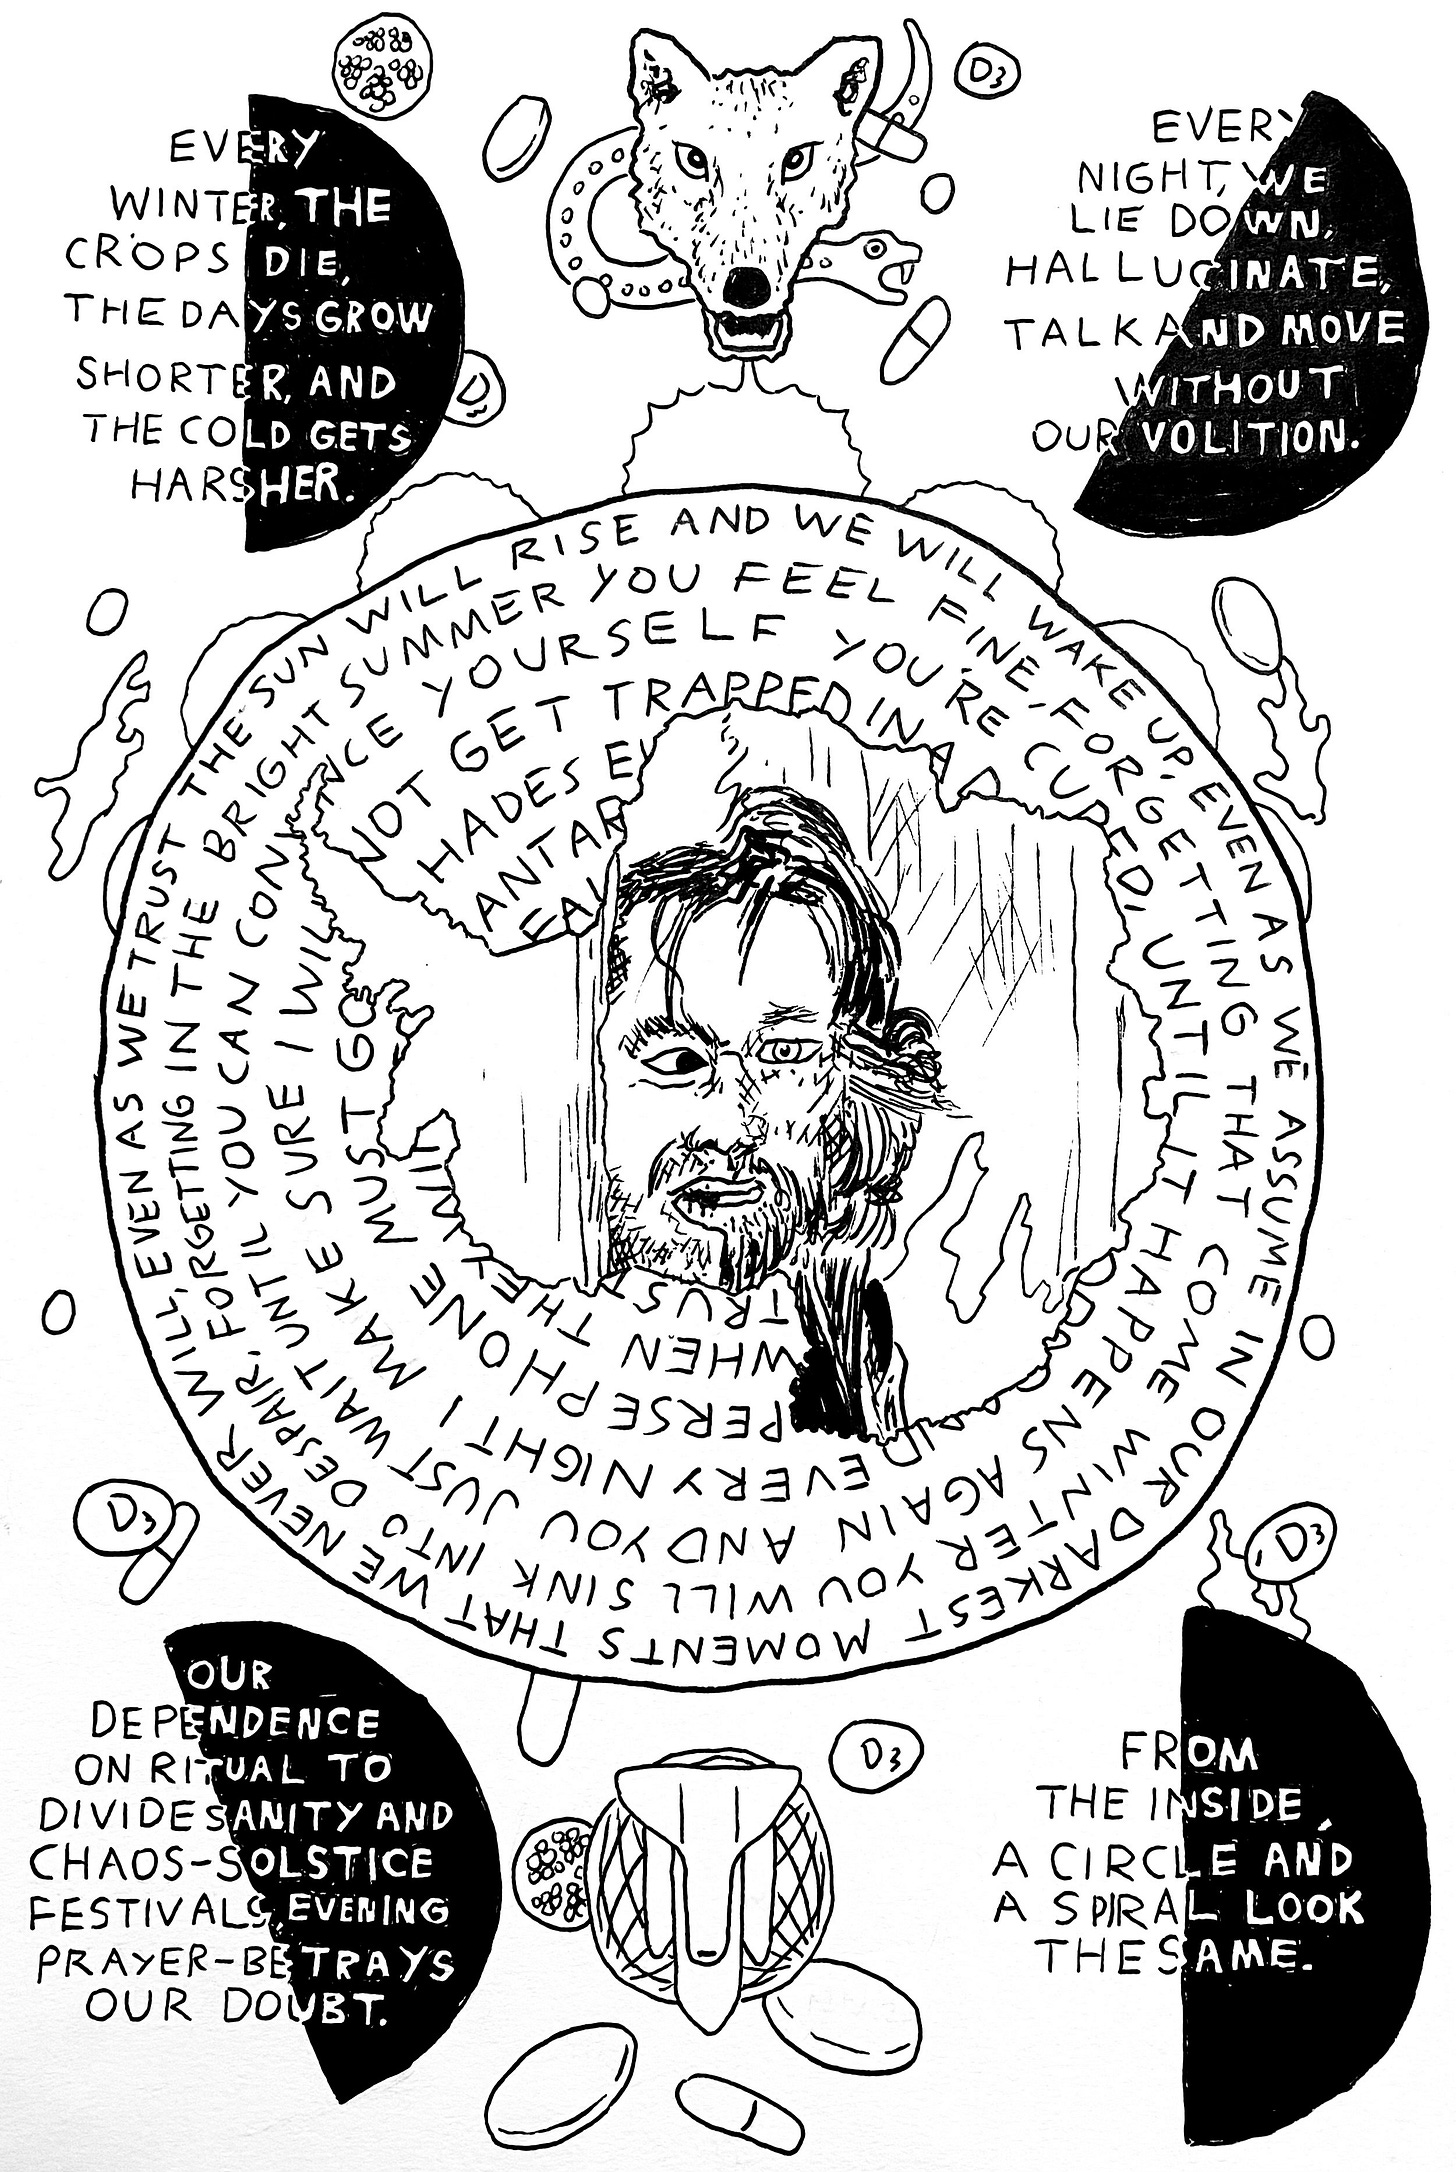 D3
EVERY
WINTER, THE
CROPS DIE,
THE DAYS GROW
SHORTER, AND
THE COLD GETS
HARSHER.
D
EVERY
NIGHT, WE
LIE DOWN,
HALLUCINATE,
TALK AND MOVE
WITHOUT
OUR VOLITION.
EVEN AS WE TRUST THE SUN WILL RISE AND WE WILL WAKE UP, EVEN AS WE ASSUME IN OUR DARKEST MOMENTS THAT WE NEVER WILL,
FORGETTING IN THE BRIGHT SUMMER YOU FEEL FINE, FORGETTING THAT COME WINTER YOU WILL SINK INTO DESPAIR,
UNTIL YOU CAN CONVINCE YOURSELF YOU'RE CURED, UNTIL IT HAPPENS AGAIN AND YOU JUST WAIT
EVERY NIGHT I MAKE SURE I WILL NOT GET TRAPPED IN A
PERSEPHONE MUST GO
HADES
WHEN THEY
ANTAR
TRUST
D3
D3
OUR
DEPENDENCE
ON RITUAL TO
DIVIDE SANITY AND
CHAOS-SOLSTICE
FESTIVALS, EVENING
PRAYER-BETRAYS
OUR DOUBT.
D3
FROM
THE INSIDE,
A CIRCLE AND
A SPIRAL LOOK
THE SAME.